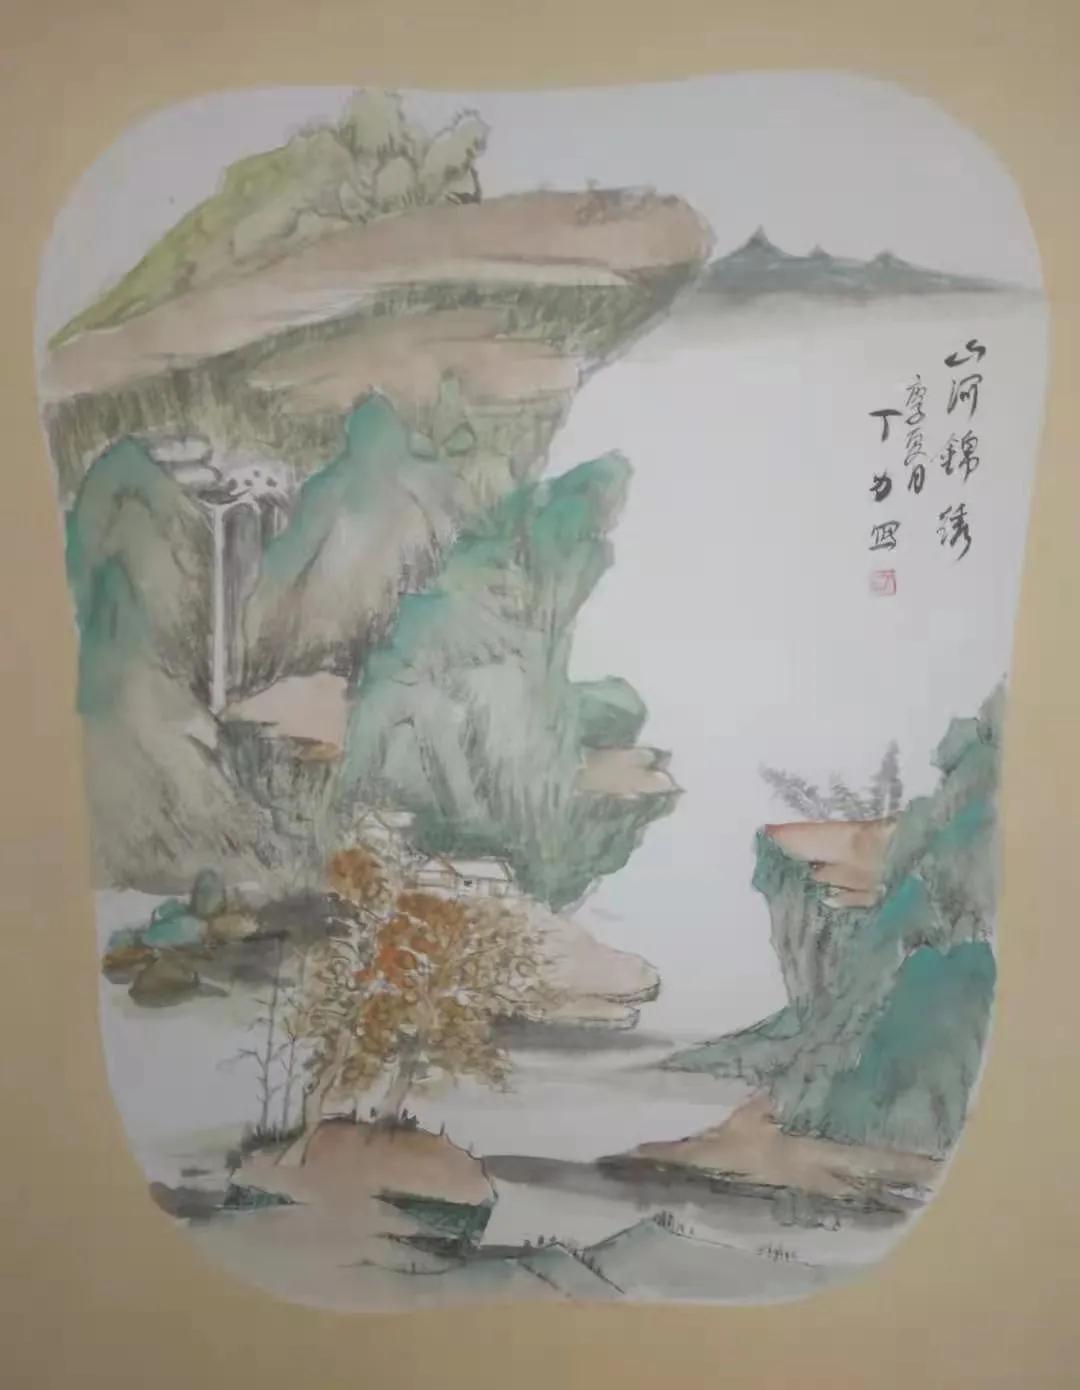 山河錦綉
庚子夏月
丁为写